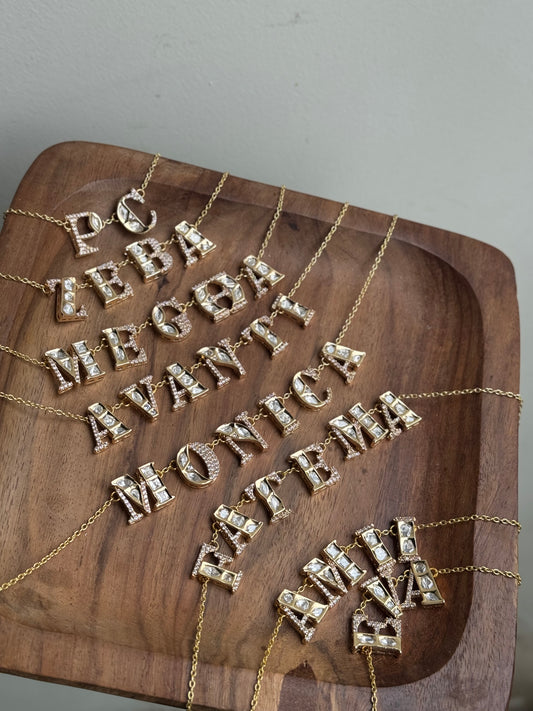 PC
ZEBA
MEGHA
AVANTI
MONICA
FATEMA
AMEL
EVA